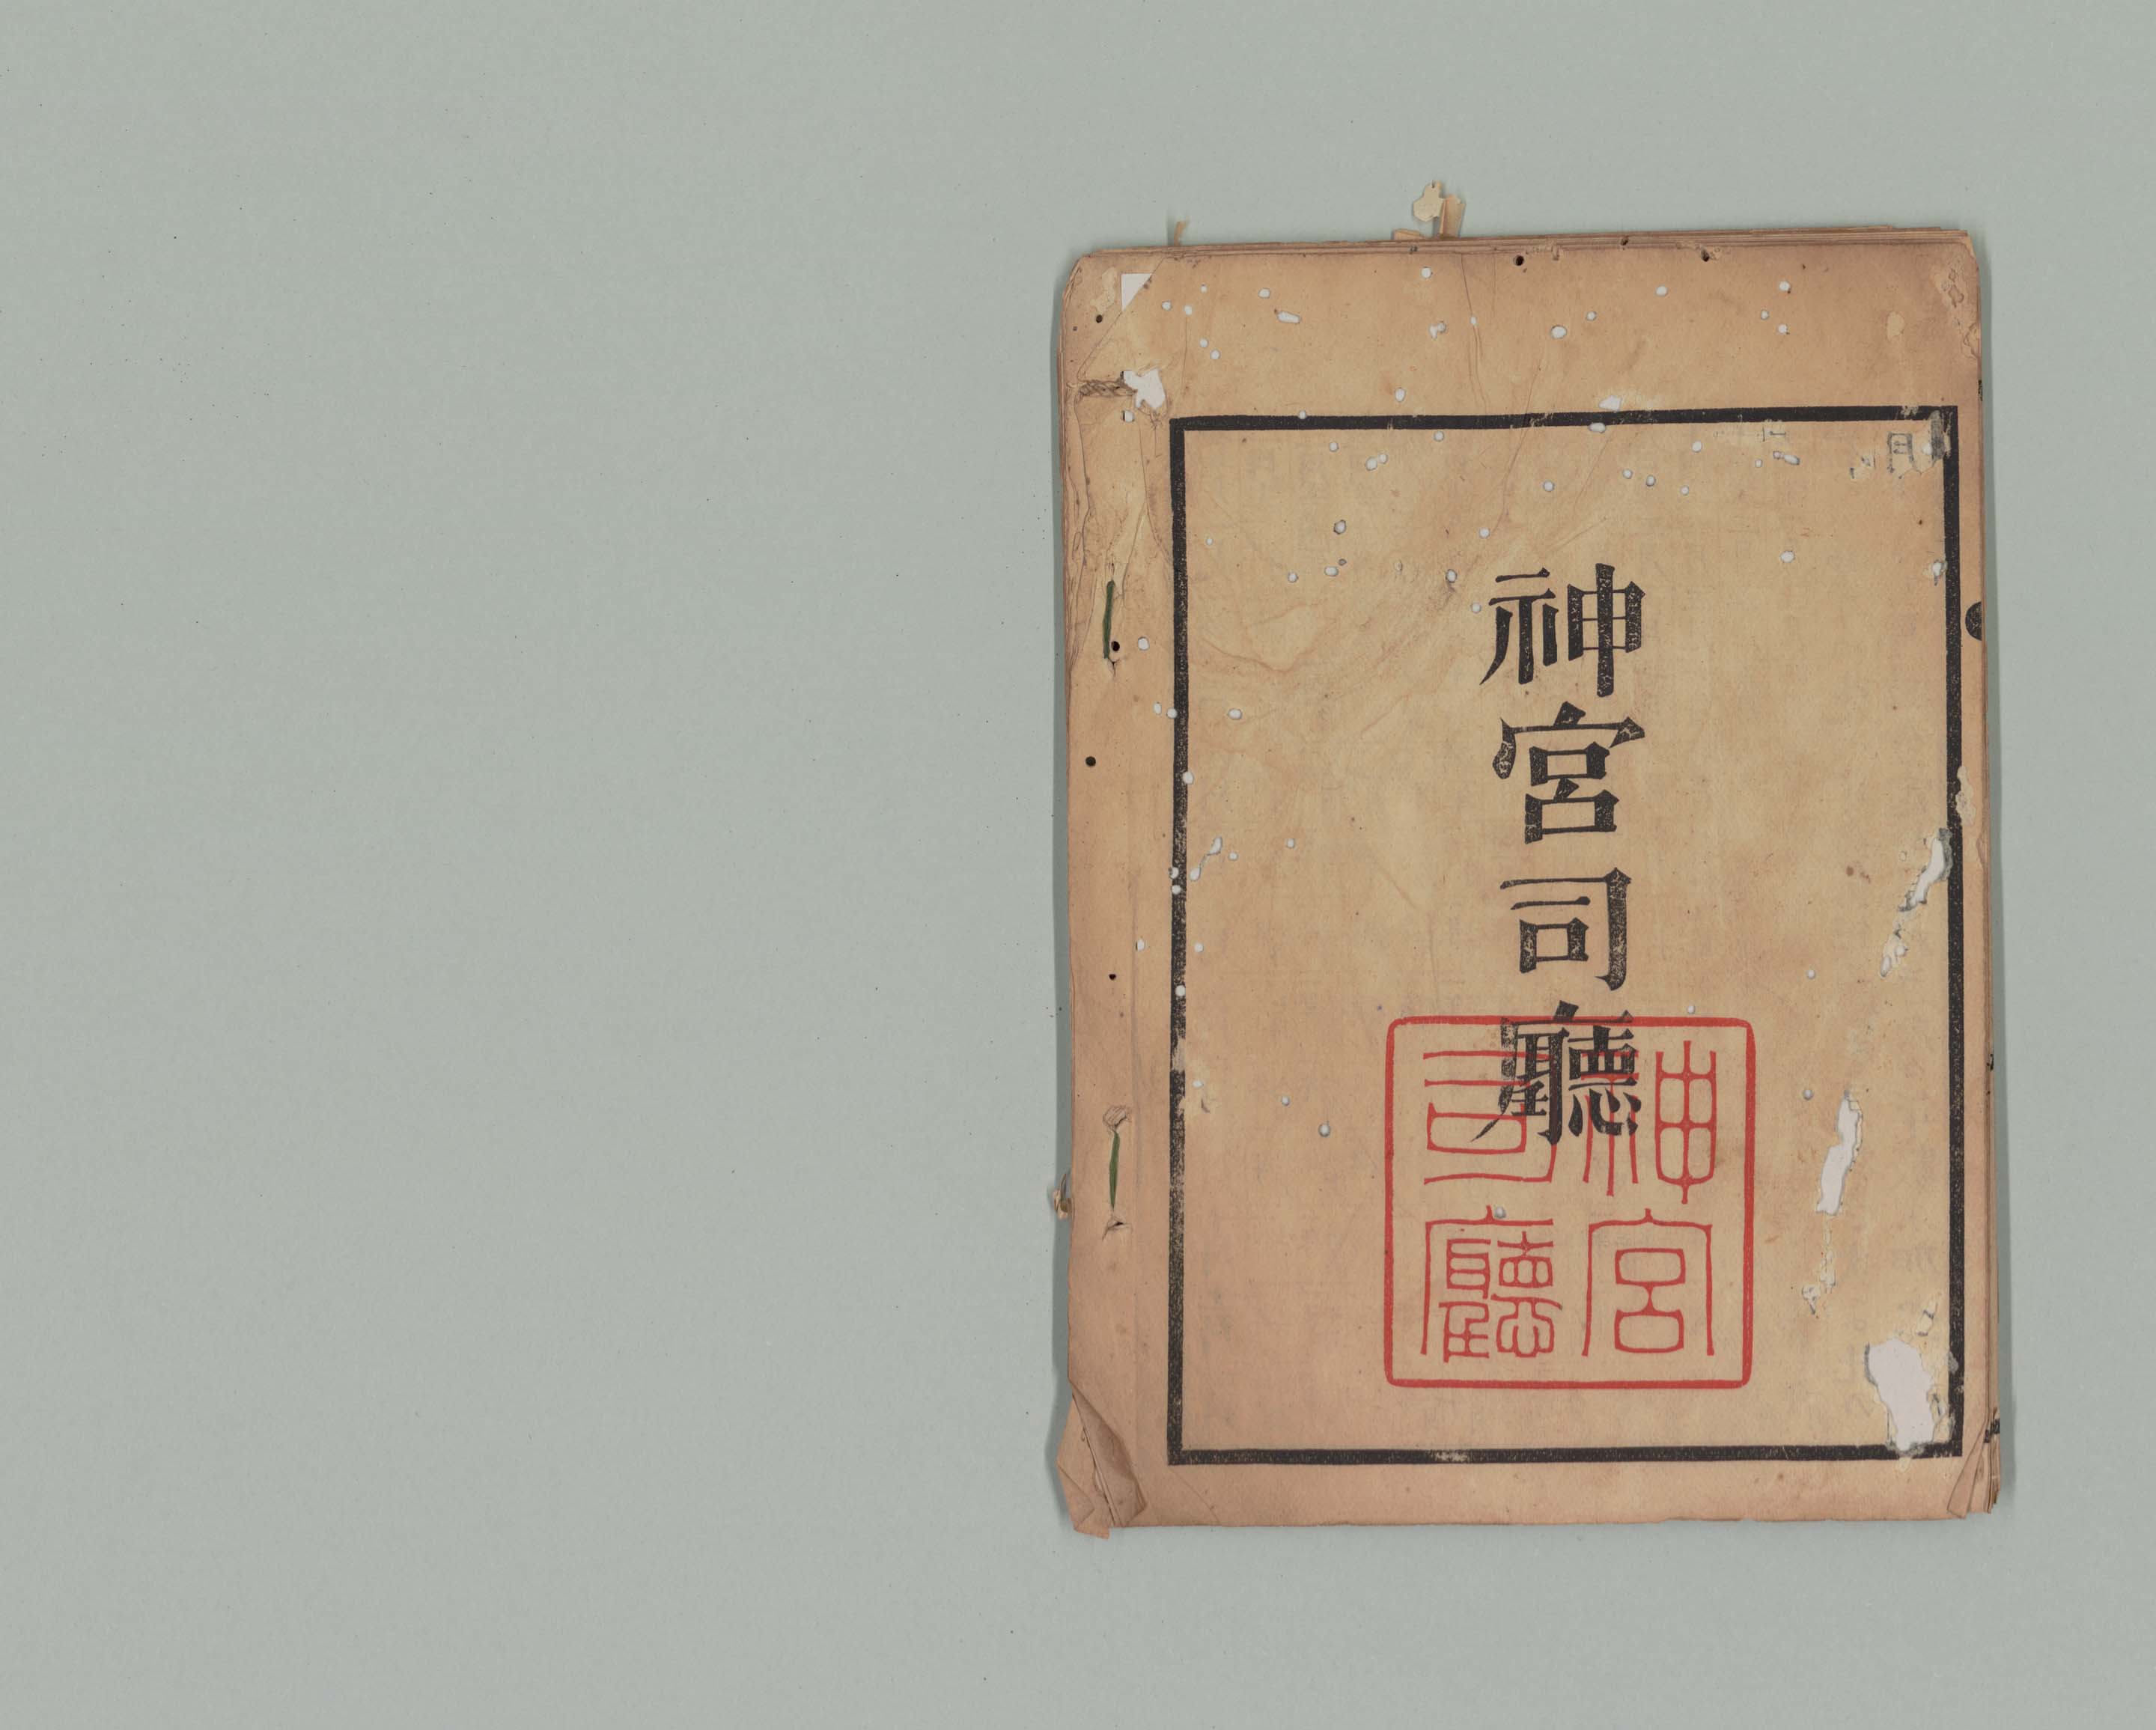 神宮司廳
神宮
司廳